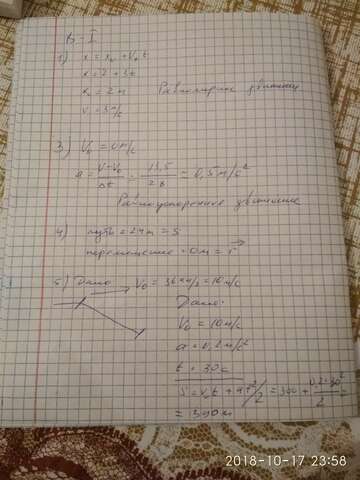 В-I
1) x = x₀ + V₀t
x = 2 + 3t
x₀ = 2м
V = 3м/с
Равномерное движение
3) V₀ = 0м/с
a = V-V₀/Δt = 13,5/28 = 0,5м/с²
Равноускоренное движение
4) путь = 24м = S
перемещение = 0м = r
5) Дано V₀ = 36км/ч = 10м/с
Дано:
V₀ = 10м/с
a = 0,2м/с²
t = 30с
S = V₀t + at²/2 = 300 + 0,2·30²/2 =
= 390м
2018-10-17 23:58